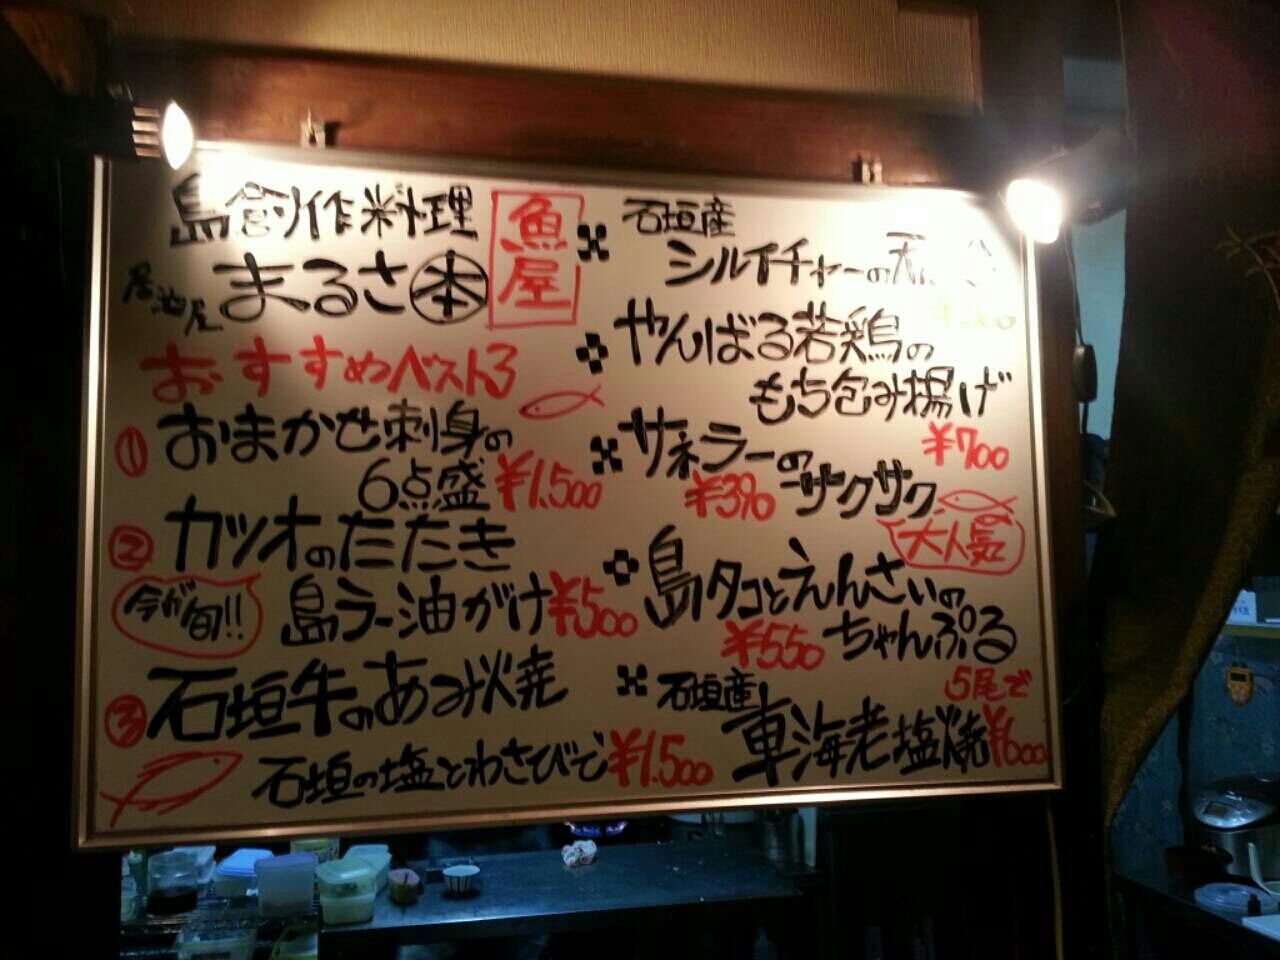 島創作料理
魚屋
居酒屋 まるさ本
おすすめベスト3
① おまかせ刺身の
6点盛 ¥1.500
② カツオのたたき
今が旬!!
島ラー油がけ ¥500
③ 石垣牛のあみ焼
石垣の塩とわさびで ¥1.500
石垣産
シルイチャーの天
やんばる若鶏の
もち包み揚げ
¥700
サネラーの
サクサク
¥390
大人気
島タコとえんさいの
ちゃんぷる
¥550
石垣産
5尾で
車海老塩焼 ¥600